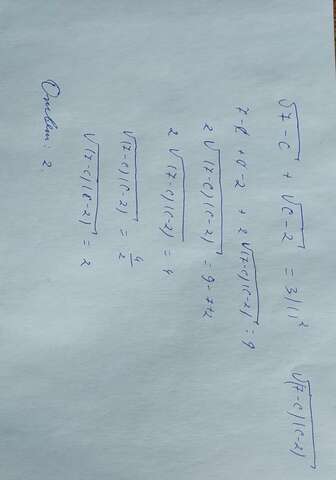 √7-c + √c-2 = 3 |()² √(7-c)(c-2)
7-c + c-2 + 2√(7-c)(c-2) = 9
2 √(7-c)(c-2) = 9-7+2
2 √(7-c)(c-2) = 4
√(7-c)(c-2) = 4/2
√(7-c)(c-2) = 2
Ответ: 2.